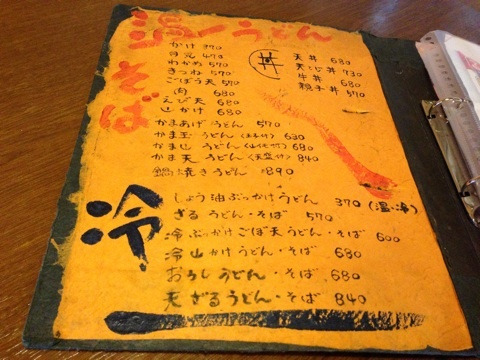 温 うどん
そば
かけ 370
月見 470
わかめ 570
きつね 570
ごぼう天 570
肉 680
えび天 680
山かけ 680
かまあげうどん 570
かま玉 うどん (玉子付) 630
かま山 うどん (山イモ付) 680
かま天 うどん (天盛付) 840
鍋焼きうどん 890
丼
天丼 680
天とじ丼 730
牛丼 680
親子丼 570
冷
しょう油ぶっかけうどん 370 (温・冷)
ざるうどん・そば 570
冷ぶっかけごぼ天うどん・そば 600
冷山かけうどん・そば 680
おろしうどん・そば 680
天ざるうどん・そば 840